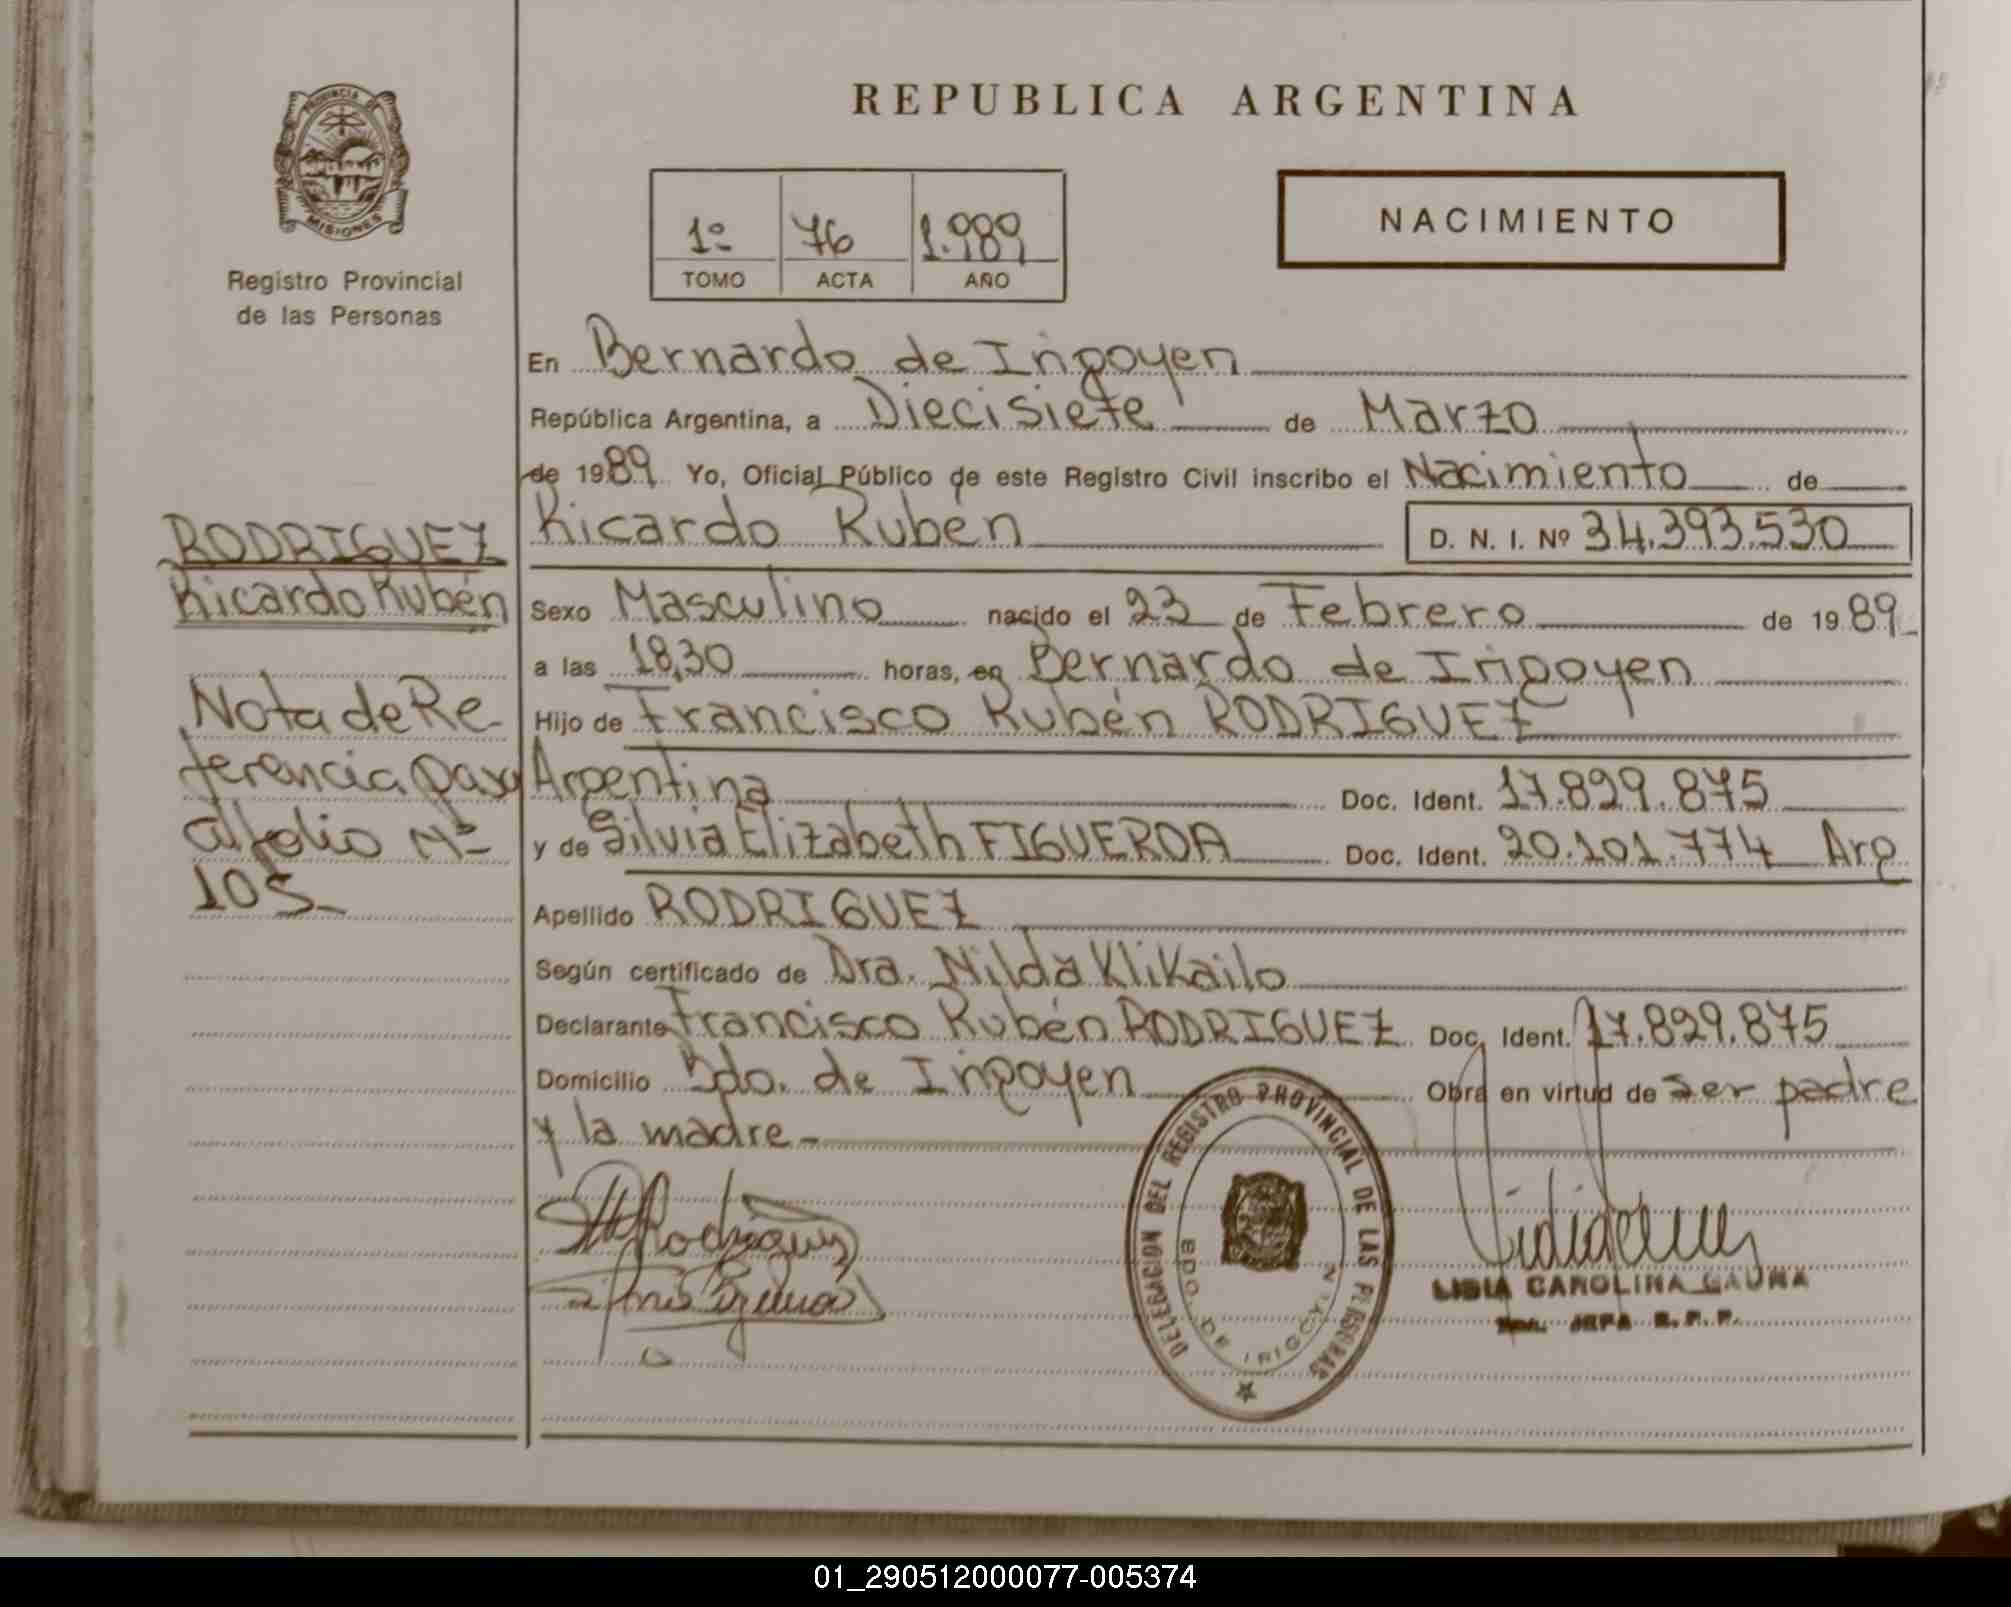 PROVINCIA DE
MISIONES
Registro Provincial
de las Personas
REPUBLICA ARGENTINA
1º 76 1.989
TOMO ACTA AÑO
NACIMIENTO
En Bernardo de Irigoyen
República Argentina, a Diecisiete de Marzo
de 1989 Yo, Oficial Público de este Registro Civil inscribo el Nacimiento de
Ricardo Rubén D. N. I. Nº 34.393.530
Sexo Masculino nacido el 23 de Febrero de 1989
a las 18,30 horas, en Bernardo de Irigoyen
Hijo de Francisco Rubén RODRIGUEZ
Argentina Doc. Ident. 17.829.875
y de Silvia Elizabeth FIGUEROA Doc. Ident. 20.101.774 Arg
Apellido RODRIGUEZ
Según certificado de Dra. Nilda Klikailo
Declarante Francisco Rubén RODRIGUEZ Doc. Ident. 17.829.875
Domicilio Bdo. de Irigoyen Obra en virtud de ser padre
y la madre-
RODRIGUEZ
Ricardo Rubén
Nota de Re
ferencia pasa
al folio Nº
105-
DELEGACION DEL REGISTRO PROVINCIAL DE LAS PERSONAS
BDO. DE IRIGOYEN
LIDIA CAROLINA GAUNA
JEFA R. P. P.
01_290512000077-005374